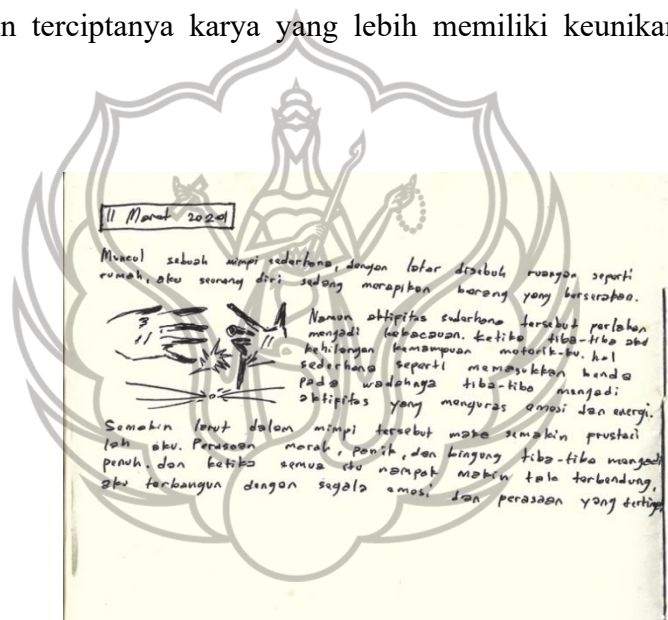 n terciptanya karya yang lebih memiliki keunikan
11 Maret 2020
Muncul sebuah mimpi sederhana, dengan latar disebuh ruangan seperti
rumah, aku seorang diri sedang merapikan barang yang berserakan.
Namun aktifitas sederhana tersebut perlahan
menjadi kekacauan. ketika tiba-tiba aku
kehilangan kemampuan motorik-ku. hal
sederhana seperti memasukkan benda
pada wadahnya tiba-tiba menjadi
aktifitas yang menguras emosi dan energi.
Semakin larut dalam mimpi tersebut maka semakin prustasi
lah aku. Perasaan marah, panik, dan bingung tiba-tiba menjadi
penuh. dan ketika semua itu nampak makin tak terbendung,
aku terbangun dengan segala emosi dan perasaan yang